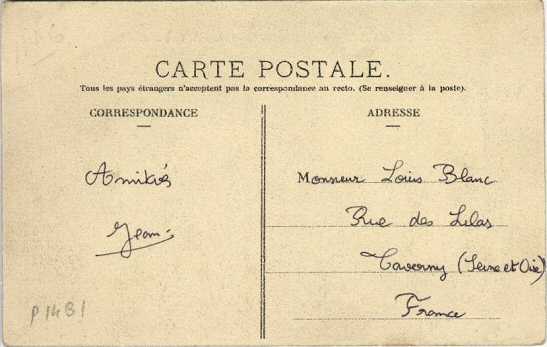 CARTE POSTALE.
Tous les pays étrangers n'acceptent pas la correspondance au recto. (Se renseigner à la poste).
CORRESPONDANCE
Amitiés
Jean
P1431
ADRESSE
Monsieur Louis Blanc
Rue des Lilas
Taverny (Seine et Oise)
France